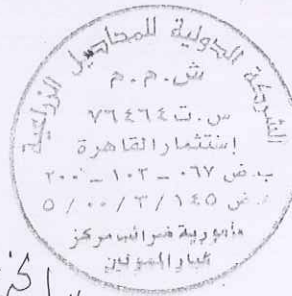 الشركة الدولية للمحاصيل الزراعية
ش.م.م
س.ت ٧٦٤٦٤
إستثمار القاهرة
ب.ض ٠٦٧ - ١٠٢ - ٢٠٠
م.ض ٥/٠٠/٣/١٤٥
مأمورية ضرائب مركز
كبار الممولين